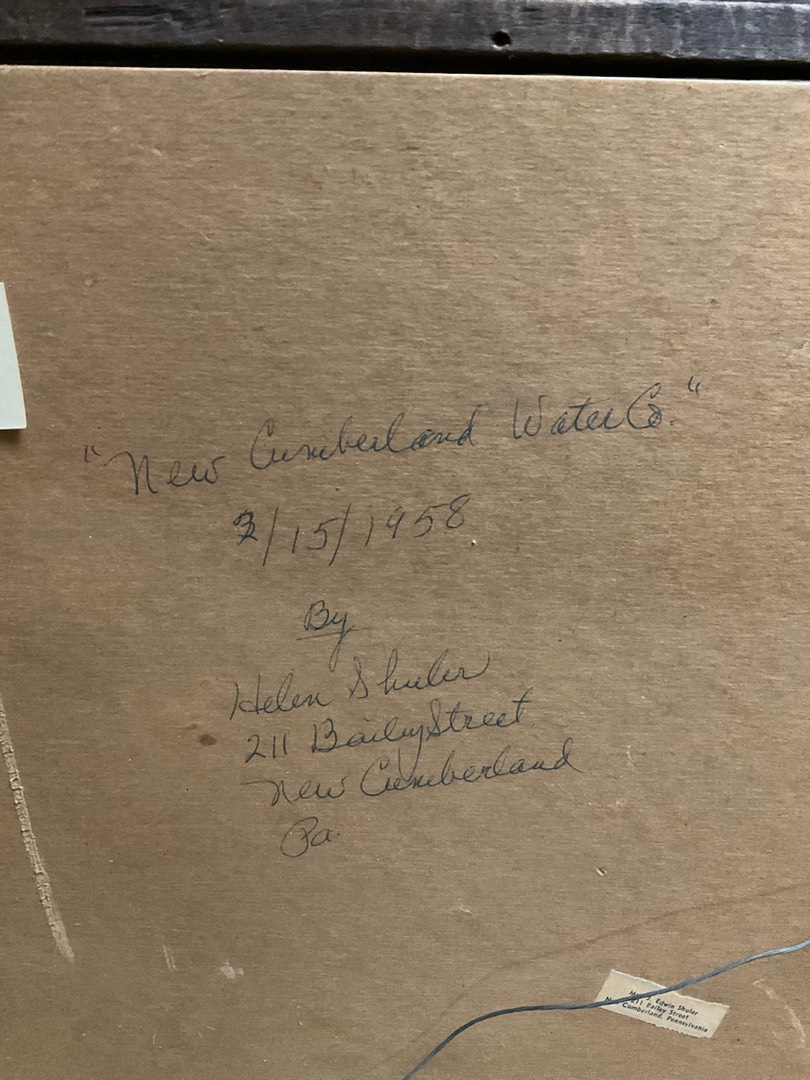 "New Cumberland Water Co."
3/15/1958
By
Helen Shuler
211 Baily Street
New Cumberland
Pa.
J. Edwin Shuler
211 Bailey Street
Cumberland, Pennsylvania